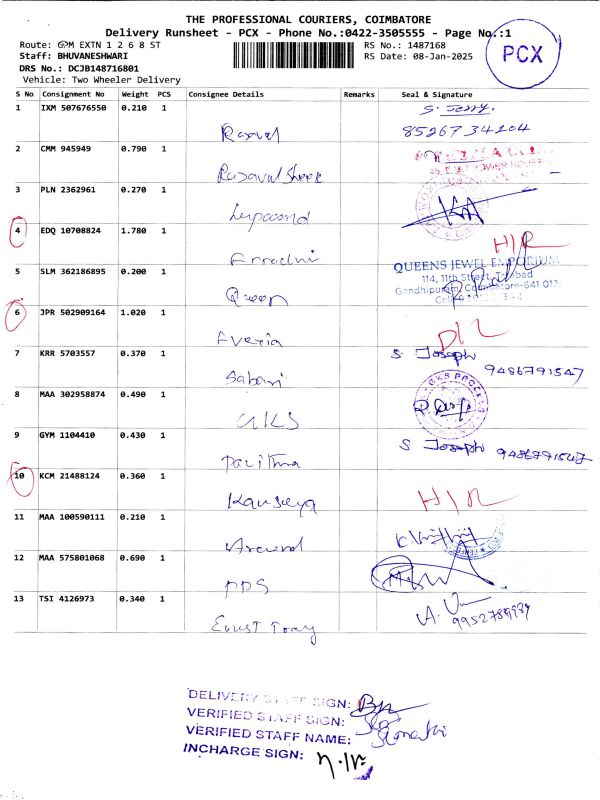 THE PROFESSIONAL COURIERS, COIMBATORE
Delivery Runsheet - PCX - Phone No.:0422-3505555 - Page No.:1
Route: GPM EXTN 1 2 6 8 ST
RS No.: 1487168
Staff: BHUVANESHWARI
RS Date: 08-Jan-2025
PCX
DRS No.: DCJB148716801
Vehicle: Two Wheeler Delivery
S No Consignment No Weight PCS Consignee Details Remarks Seal & Signature
1 IXM 507676550 0.210 1 S. Jerry.
8526734204
2 CMM 945949 0.790 1
3 PLN 2362961 0.270 1
4 EDQ 10708824 1.780 1 H/R
5 SLM 362186895 0.200 1 Queen
QUEENS JEWEL EMPORIUM
114, 11th Street, Tatabad
Gandhipuram, Coimbatore-641 012.
6 JPR 502909164 1.020 1 D/L
7 KRR 5703557 0.370 1 Sabari S. Joseph
9486791547
8 MAA 302958874 0.490 1 GKS
9 GYM 1104410 0.430 1 Pavithra S Joseph 9486791547
10 KCM 21488124 0.360 1 Kausalya H/R
11 MAA 100590111 0.210 1 Aravind
12 MAA 575801068 0.690 1 PPS
13 TSI 4126973 0.340 1
DELIVERY STAFF SIGN:
VERIFIED STAFF SIGN:
VERIFIED STAFF NAME:
INCHARGE SIGN: